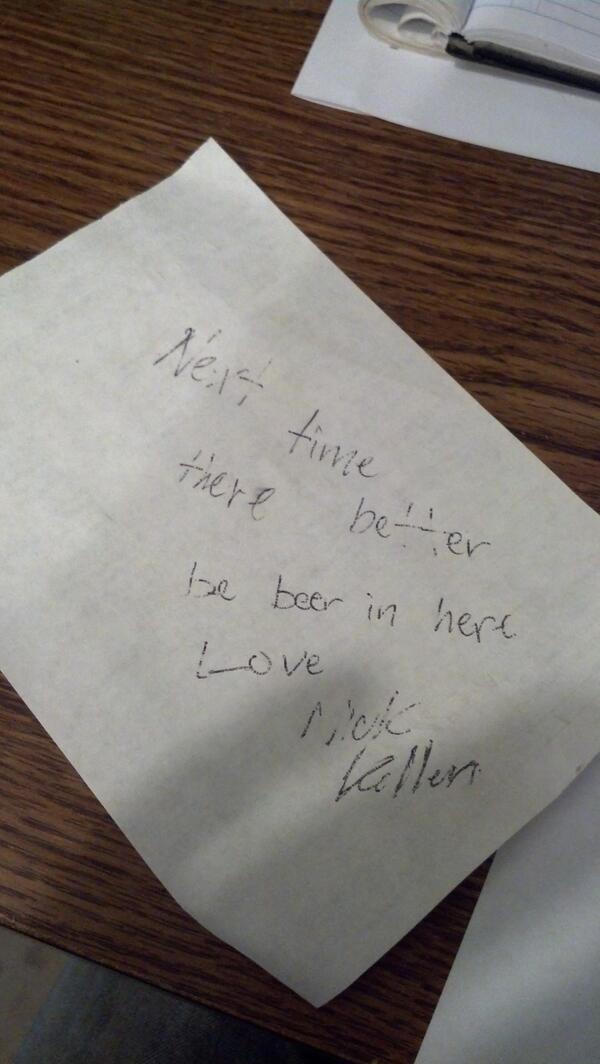 Next time
there better
be beer in here
Love
Nick
Killen